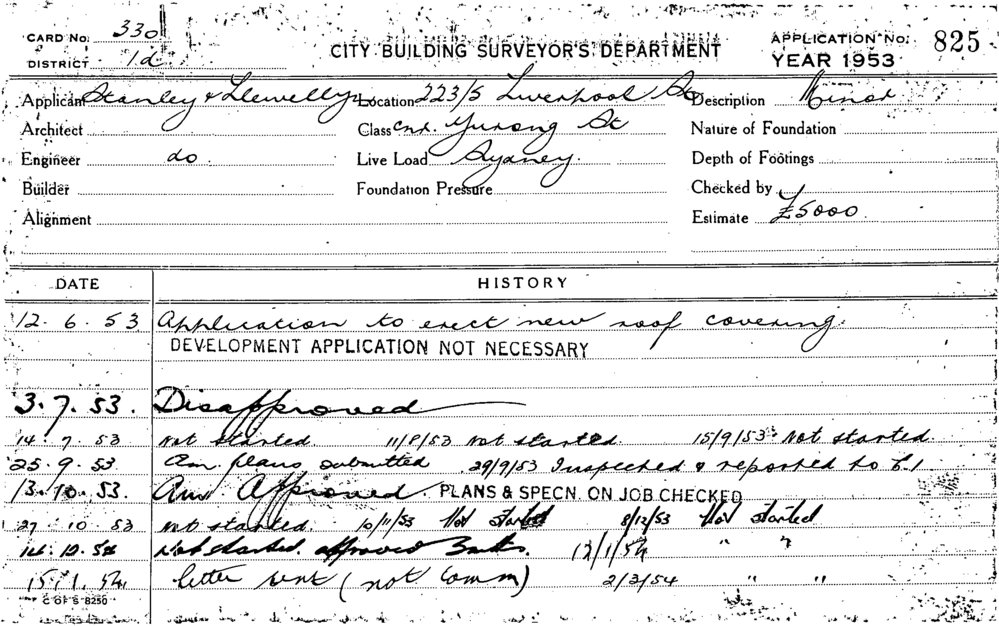 CARD No. 330
DISTRICT 1d
CITY BUILDING SURVEYOR'S DEPARTMENT
APPLICATION No. 825
YEAR 1953
Applicant Stanley & Llewellyn Location 223/5 Liverpool St Description Minor
Architect Class cnr. Yurong St Nature of Foundation
Engineer do. Live Load Sydney. Depth of Footings
Builder Foundation Pressure Checked by
Alignment Estimate £5000.
DATE HISTORY
12. 6. 53 Application to erect new roof covering.
DEVELOPMENT APPLICATION NOT NECESSARY
3. 7. 53. Disapproved
14. 7. 53 Not started. 11/8/53 Not started. 15/9/53 Not started.
25. 9. 53. Am. plans submitted 29/9/53 Inspected & reported to
13. 10. 53. Am Approved. PLANS & SPECN. ON JOB CHECKED
27. 10. 53 Not started. 10/11/53 Not started 8/12/53 Not started
Not started. approved 12/1/54 " "
15. 1. 54 letter sent (not Comm) 2/2/54 " "
C OF S 8250